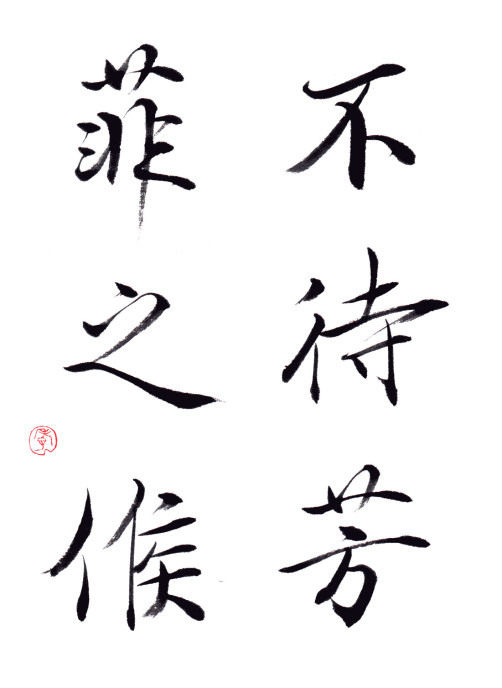 不待芳
菲之候